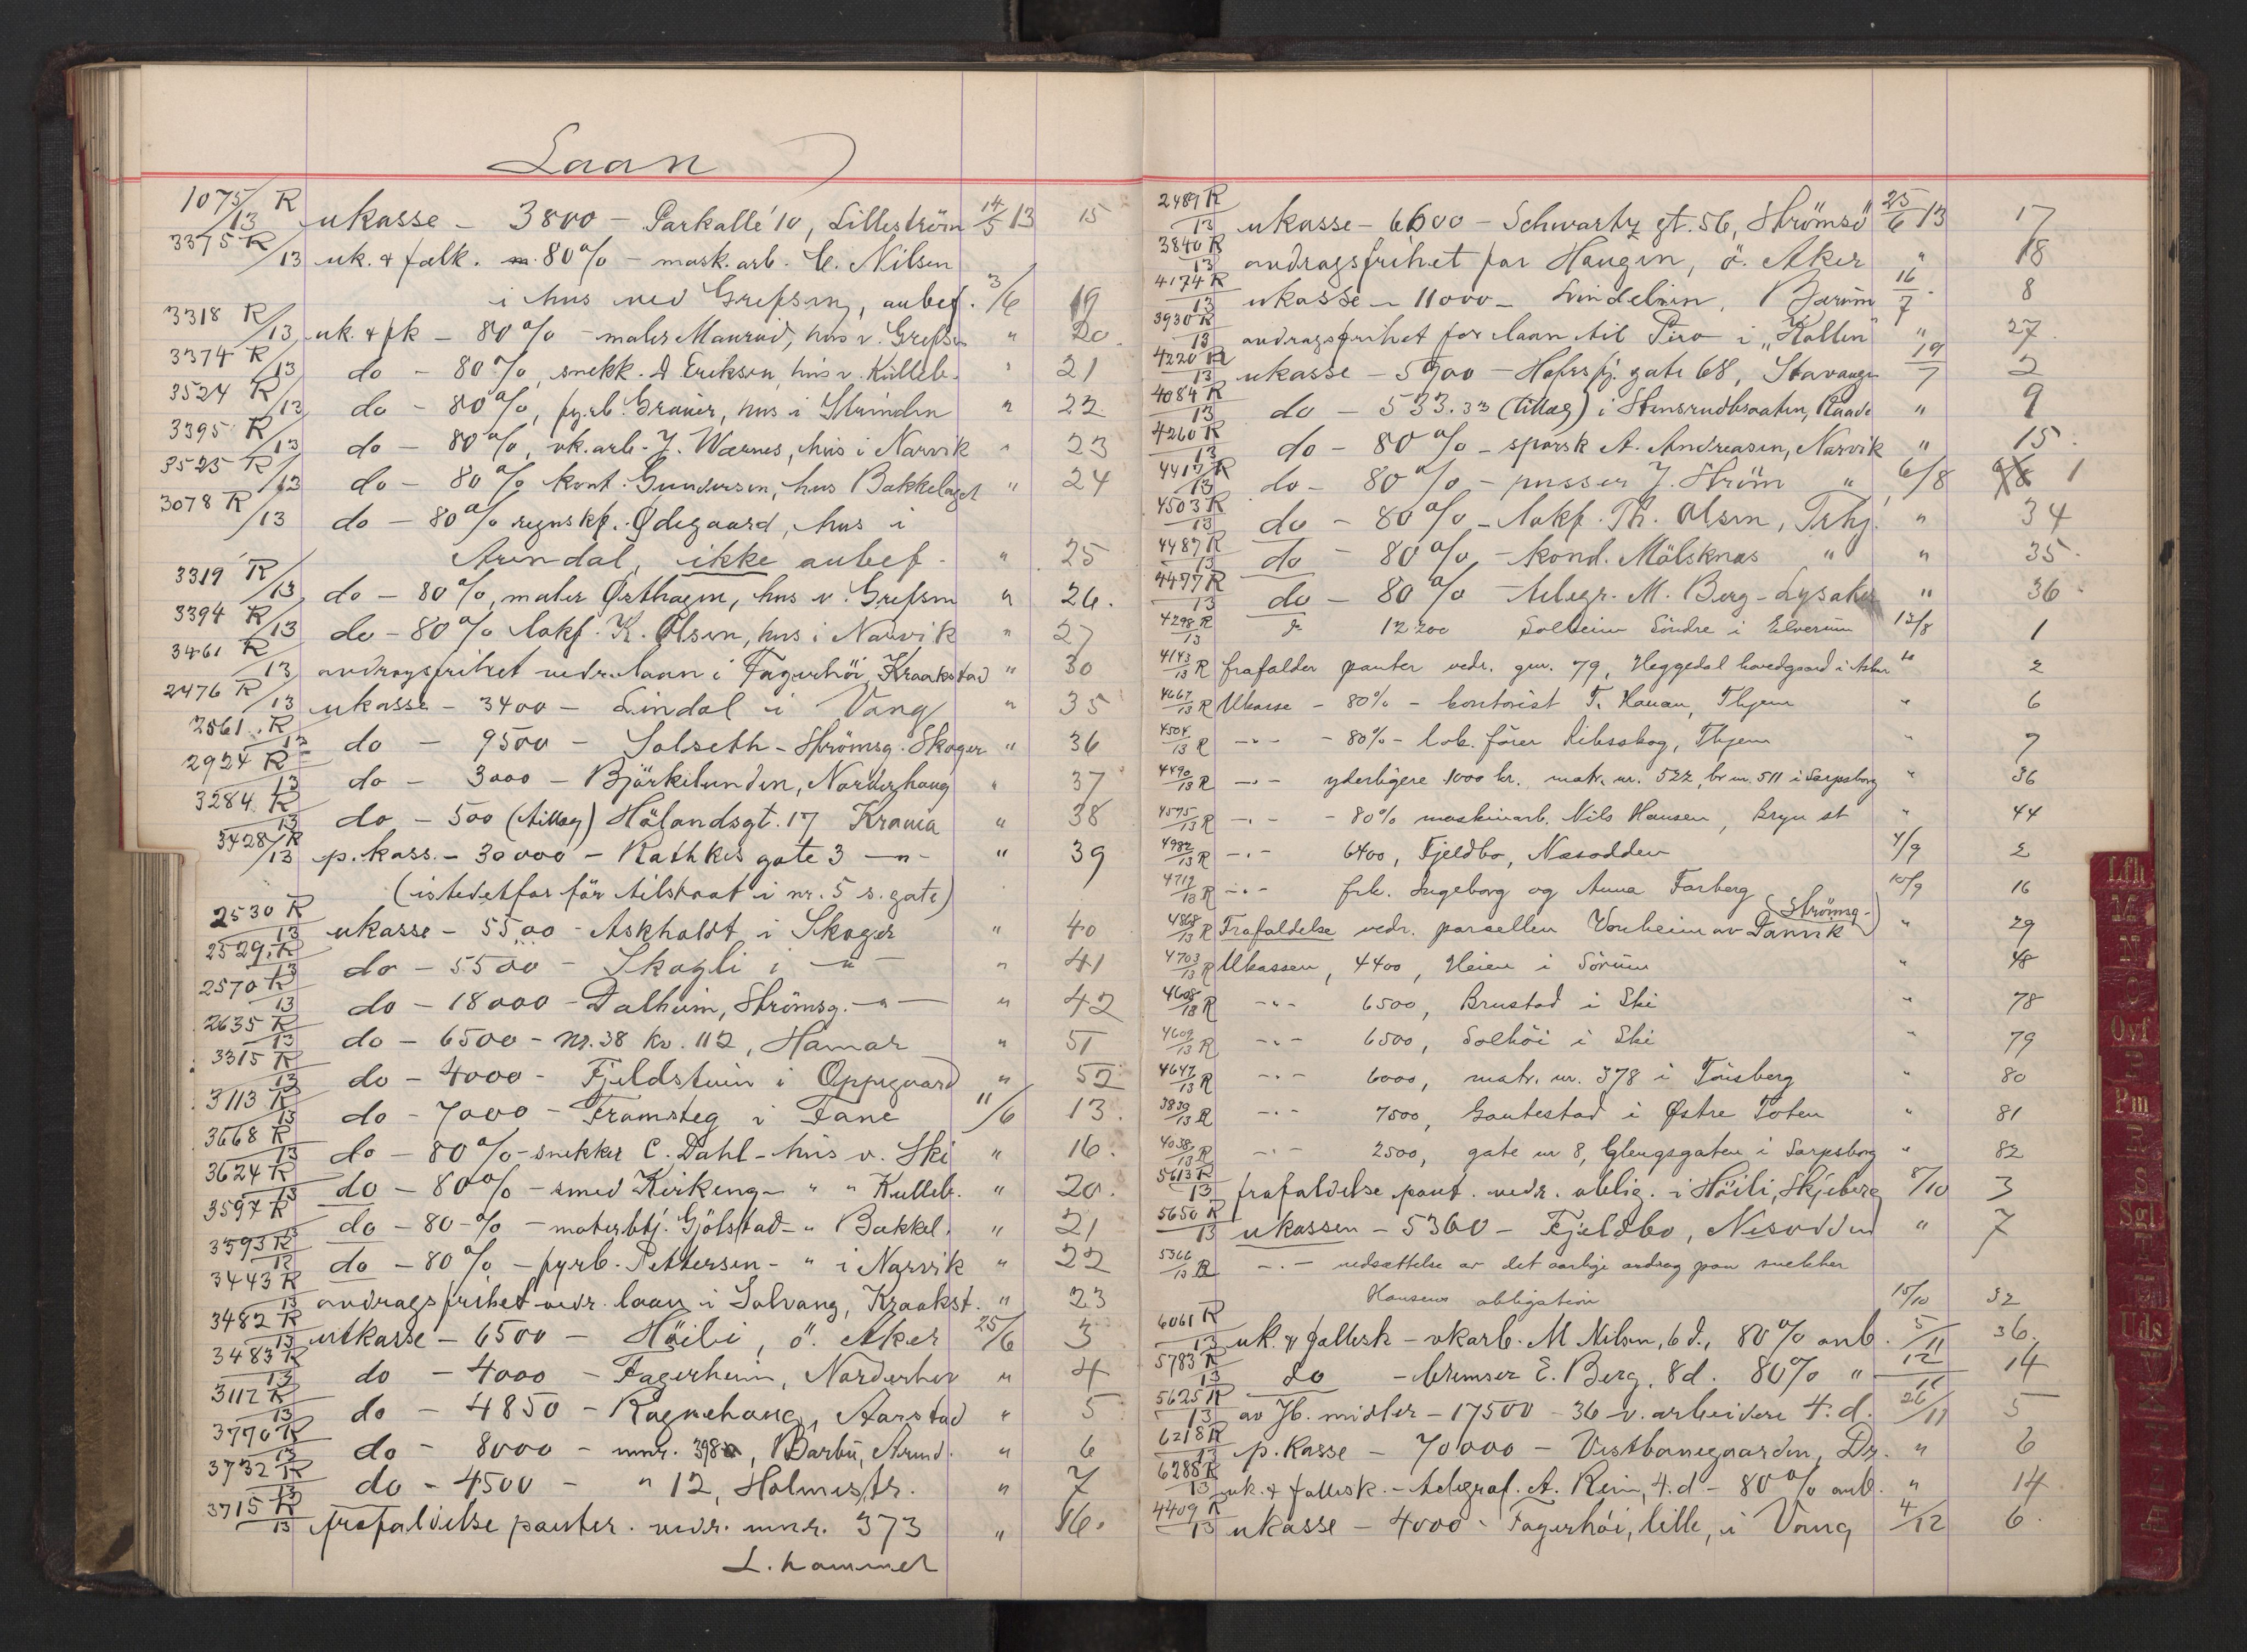 Laan
1075/13 R ukasse - 3800 - Parkallé 10, Lilleström 14/5 13 15
3375 R/13 uk. & falk. m. 80% - mask. arb. C. Nilsen
i hus ved Grefsen, anbef. 3/6 19
3318 R/13 uk. & fk - 80% - maler Maurud, hus v. Grefsen " 20.
3374 R/13 do - 80%, snekk. A Eriksen, hus v. Kulleb. " 21
3524 R/13 do - 80%, fyrb. Graner, hus i Strinden " 22
3395 R/13 do - 80%, vk.arb. J. Wærnes, hus i Narvik " 23
3525 R/13 do - 80% kont. Gundersen, hus Bakkelaget " 24
3078 R/13 do - 80% regnskf. Ødegaard, hus i
Arendal, ikke anbef. " 25
3319 R/13 do - 80%, maler Østhagen, hus v. Grefsen " 26.
3394 R/13 do - 80% lokf. K. Olsen, hus i Narvik " 27
3461 R/13 avdragsfrihet vedr. laan i Fagerhöi, Kraakstad " 30
2476 R/13 ukasse - 3400 - Lindal i Vang " 35
2561 R/13 do - 9500 - Solseth - Strömsg. Skoger " 36
2924 R/13 do - 3000 - Björkelunden, Norderhaug " 37
3284 R/13 do - 500 (tillæg) Hålandsgt. 17 Krania " 38
3428/13 R p. kass. - 30000 - Rathkes gate 3 -"- " 39
(istedetfor för tilstaat i nr. 5 s. gate)
2530 R/13 ukasse - 5500 - Askholdt i Skoger " 40
2529 R/13 do - 5500 - Skogli i -"- " 41
2570 R/13 do - 18000 - Dalheim, Strömsg. -"- " 42
2635 R/13 do - 6500 - Nr. 38 kv. 112, Hamar " 51
3315 R/13 do - 4000 - Fjeldstuen i Oppegaard " 52
3113 R/13 do - 7000 - Framsteg i Fane 11/6 13.
3668 R/13 do - 80% - snekker C. Dahl - hus v. Ski " 16.
3624 R/13 do - 80% - smed Kirkeng - " " Kulleb. " 20.
3597 R/13 do - 80-% - materbtj. Gjölstad - " Bækkel. " 21
3593 R/13 do - 80% - fyrb. Pettersen - " i Narvik " 22
3443 R/13 avdragsfrihet vedr. laan i Solvang, Kraakst. " 23
3482 R/13 utkasse - 6500 - Höili, ö. Aker 25/6 3
3483 R/13 do - 4000 - Fagerheim, Norderhov " 4
3112 R/13 do - 4850 - Ragnehaug, Aarstad " 5
3770 R/13 do - 8000 - mnr. 398a, Barbu, Arend. " 6
3732 R/13 do - 4500 - " 12, Holmestr. " 7
3715 R/13 frafaldelse panter. vedr. mnr. 373 " 16.
L. hammer
2489 R/13 ukasse - 6600 - Schwartz gt. 56, Strömsö 25/6 13 17
3840 R/13 avdragsfrihet for Haugen, ö. Aker " 18
4174 R/13 ukasse - 11000 - Lindelien, Bærum 16/7 8
3930 R/13 avdragsfrihet for laan til Piro i "Kollen" " 27.
4220 R/13 ukasse - 5900 - Hafrsfj. gate 68, Stavanger 19/7 2
4084 R/13 do - 533.33 (tillæg) i Stensrudbraaten, Raade " 9
4260 R/13 do - 80% - sporsk A. Andreasen, Narvik " 15.
4417 R/13 do - 80% - pusser J. Ström " 6/8 1
4503 R/13 do - 80% - lokf. Th. Olsen, Trhj. " 34
4487 R/13 do - 80% - kond. Mölsknæs " " 35.
4477 R/13 do - 80% - telegr. M. Berg - Lysaker " 36.
4298 R/13 do 12200 Solheim Söndre i Elverum 13/8 1
4143/13 R frafalder panter vedr. gnr. 79, Heggedal hovedgaard i Asker " 2
4667/13 R Ukasse - 80% - kontorist T. Hauan, Thjem " 6
4504/13 R -"- - 80% - lok. förer Ribsskog, Thjem " 7
4490/13 R -"- yderligere 1000 kr. matr. nr. 522, br nr. 511 i Sarpsborg " 36
4575/13 R -"- - 80% maskinarb. Nils Hansen, Bryn st " 44
4982/13 R -"- 6400, Fjeldbo, Næsodden 4/9 2
4719/13 R -"- frk. Ingeborg og Anna Farberg 10/9 16
4868/13 R Frafaldelse vedr. parsellen Vonheim av Danvik (Strömsg-) " 29
4703/13 R Ukassen, 4400, Heien i Sörum " 48
4608/13 R -"- 6500, Brustad i Ski " 78
4609/13 R -"- 6500, Solhöi i Ski " 79
4647/13 R -"- 6000, matr. nr. 378 i Tönsberg " 80
3839/13 R -"- 7500, Gautestad i Østre Toten " 81
4038/13 R -"- 2500, gate nr 8, Glengsgaten i Sarpsborg " 82
5613 R/13 frafaldelse pant. vedr. oblig. i Höili, Skjeberg 8/10 3
5650 R/13 ukassen - 5360 - Fjeldbo, Nesodden " 7
5366/13 R -"- nedsættelse av det aarlige avdrag paa snekker
Hansens obligation 15/10 32
6061 R/13 uk. & fallesk - vkarb. M Nilsen, 6 d., 80% anb. 5/11 36.
5783 R/13 do - bremser E. Berg, 8 d. 80% " 12/11 14
5625 R/13 av Jb. midler - 17500 - 36 v. arbeidere 4. d. 26/11 5
6218 R/13 p. kasse - 70000 - Vestbanegaarden, Dr. " 6
6288 R/13 uk. & fallesk. - telegraf. A. Rein, 4. d - 80% anb. " 14.
4409 R/13 ukasse - 4000 - Fagerhöi, lille, i Vang 4/12 6.
Lfh
M
N
O
Ovf
P
Pm
R
S
Sgl
T
U
Uds
Æ